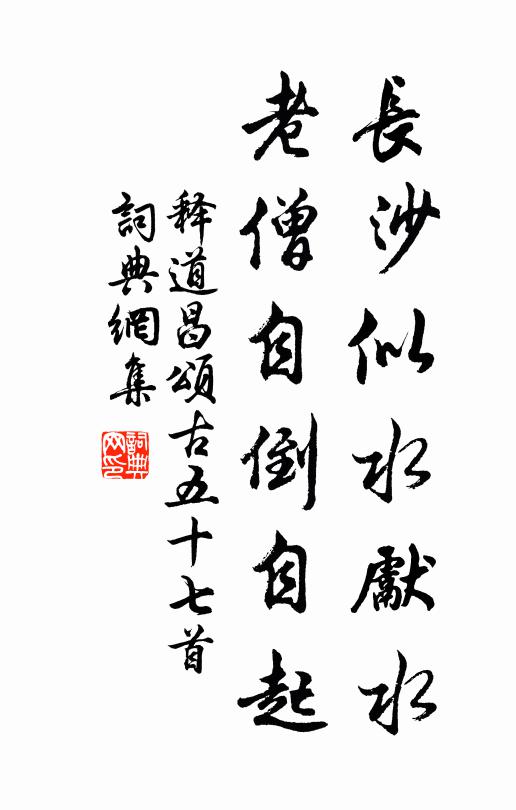 長沙似水獻水
老僧自倒自起
释道昌頌古五十七首
詞典網集
詞典网印